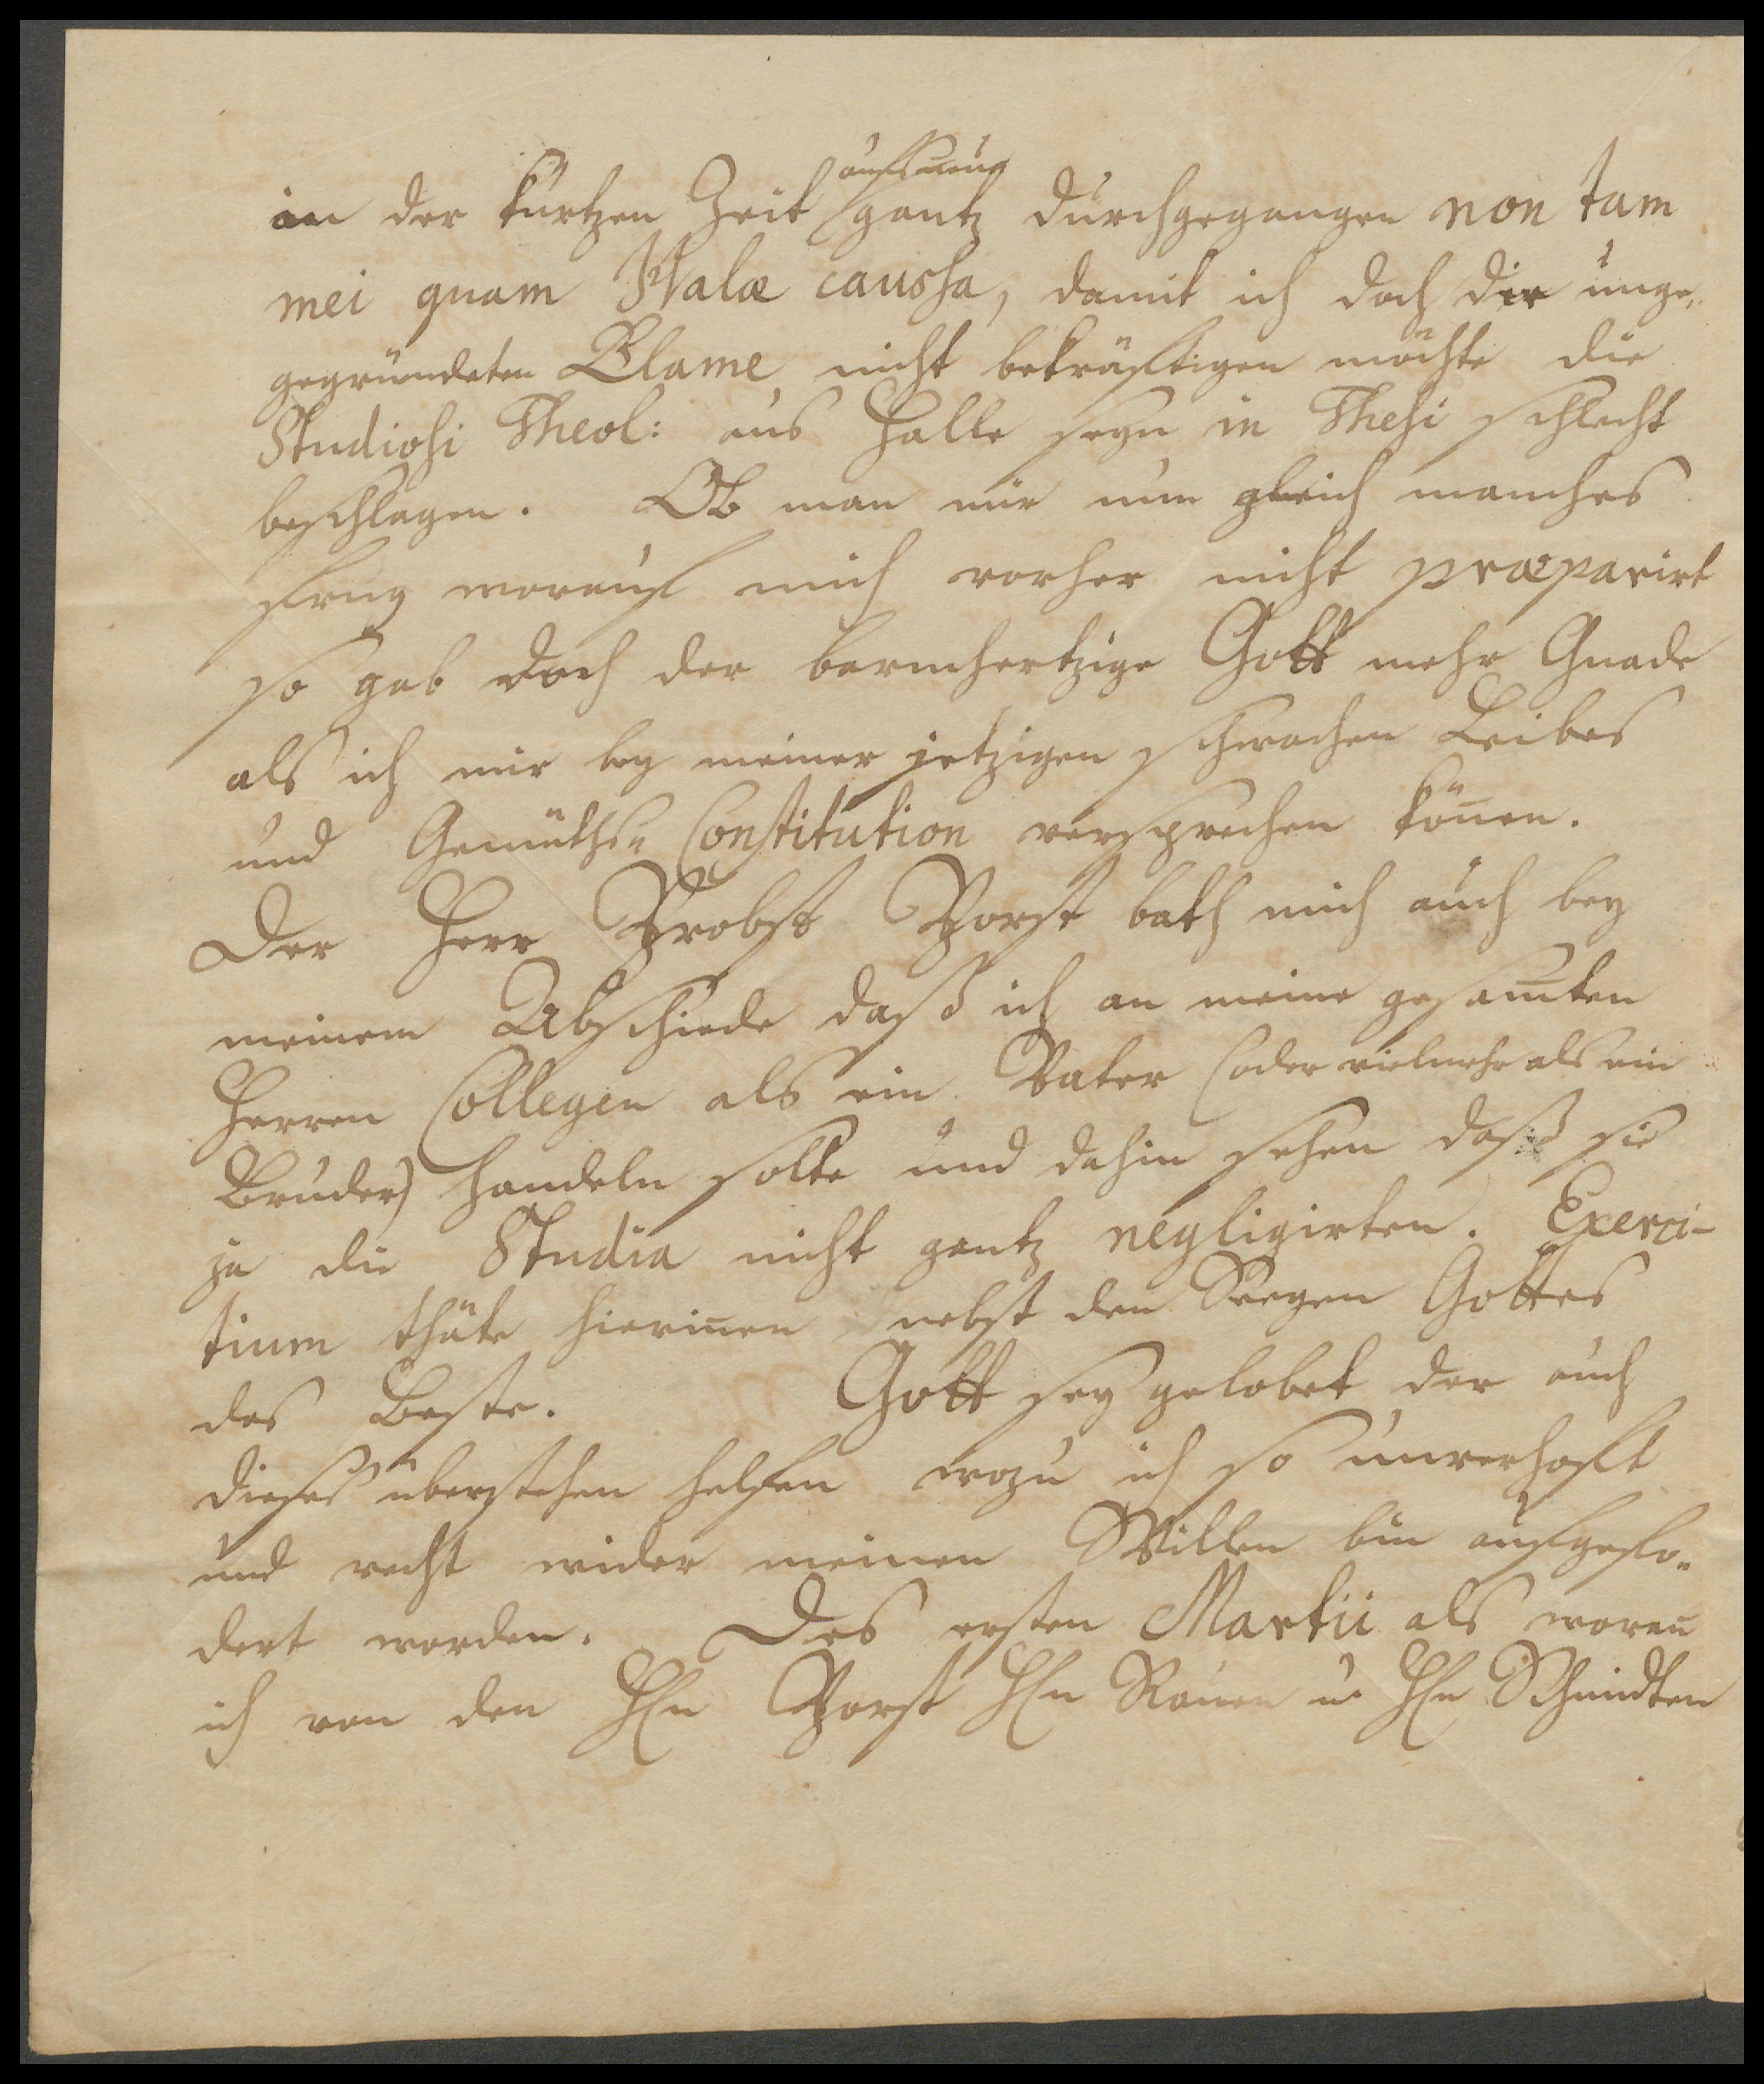 aufs neue
in der kurtzen Zeit gantz durchgegangen non tam
mei quam Halæ caussa, damit ich doch die unge„
gegründeten Blame nicht bekräftigen möchte die
Studiosi Theol: aus Halle seyn in Thesi schlecht
beschlagen. Ob man mir nun gleich manches
frug worauf mich vorher nicht præparirt
so gab doch der barmhertzige Gott mehr Gnade
als ich mir bey meiner jetzigen schwachen Leibes
und Gemüths„ Constitution versprechen köñen.
Der Herr Probst Porst bath mich auch bey
meinem Abschiede daß ich an meine gesam̃ten
Herren Collegen als ein Vater (oder vielmehr als ein
Bruder) handeln solte und dahin sehen daß sie
ja die Studia nicht gantz negligirten. Exerci-
tium thäte hieriñen nebst den Seegen Gottes
das Beste. Gott sey gelobet der auch
dieses überstehen helfen wozu ich so unverhoft
und recht wider meinen Willen bin aufgefo„
dert worden. Des ersten Martii als woran
ich von den HEn Porst HEn Rauen u. HEn Schmidten